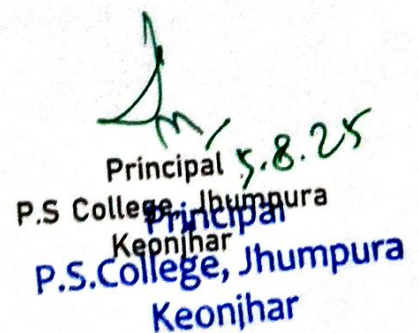 Principal 5.8.25
P.S College, Jhumpura
Keonjhar
Principal
P.S.College, Jhumpura
Keonjhar